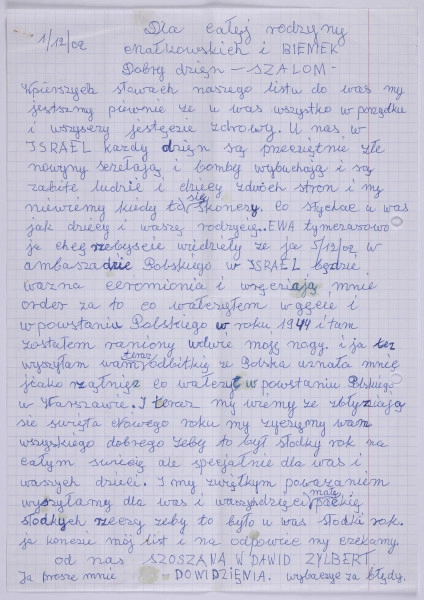 1/12/02
Dla całej rodzyny
Małkowskich i BIENEK
Dobry dzięn - SZALOM -
Wpierszych sławach naszego listu do was my
jestszmy piewnie ze u was wszystko w porządku
i wszyscy jestęscie zdrowy. U nas w
ISRAEL kazdy dzięn są przecięthie złe
nowyny sczełają i bomby wybuchają i są
zabite ludzie i dziecy zdwoch stron i my
niewimy kiedy to się skonczy. Co stychac u was
jak dziecy i waszę rodzycię. EWA tymczasowo
ja chcę zebyscie widziely ze ja 5/12/02 w
ambasadzie Polskiego w ISRAEL będzie
wazna ceromionia i wręcziają mnie
order za to co walczyłem w gęcie i
wpowstaniu Polskiego w roku 1944 i tam
zostałem raniony wdwie moję nogy. i ja tez
wyszyłam wam teraz odbitkię ze Polska uznała mnię
jcako ząłnięz co walczył w powstaniu Polskiego
w Warszawie. I teraz my wiemy ze zblyzają
sie swięta Nowego roku my zyczymy wam
wszyskiego dobrego zeby to był słodky rok na
całym swiecię ale specjalnie dla was i
waszych dzieli. I my zwiętkym powazaniem
wyszyłamy dla was i waszychdzięci małą paćkię
słodkych rzeczy zeby to było u was słodki rok.
ja koncze mój list i na odpowie my czekamy.
od nas SZOSZANA W DAWID ZYLBERT
Ja prosze mnie - DOWIDZIĘNIA. wybaczyc za błędy.